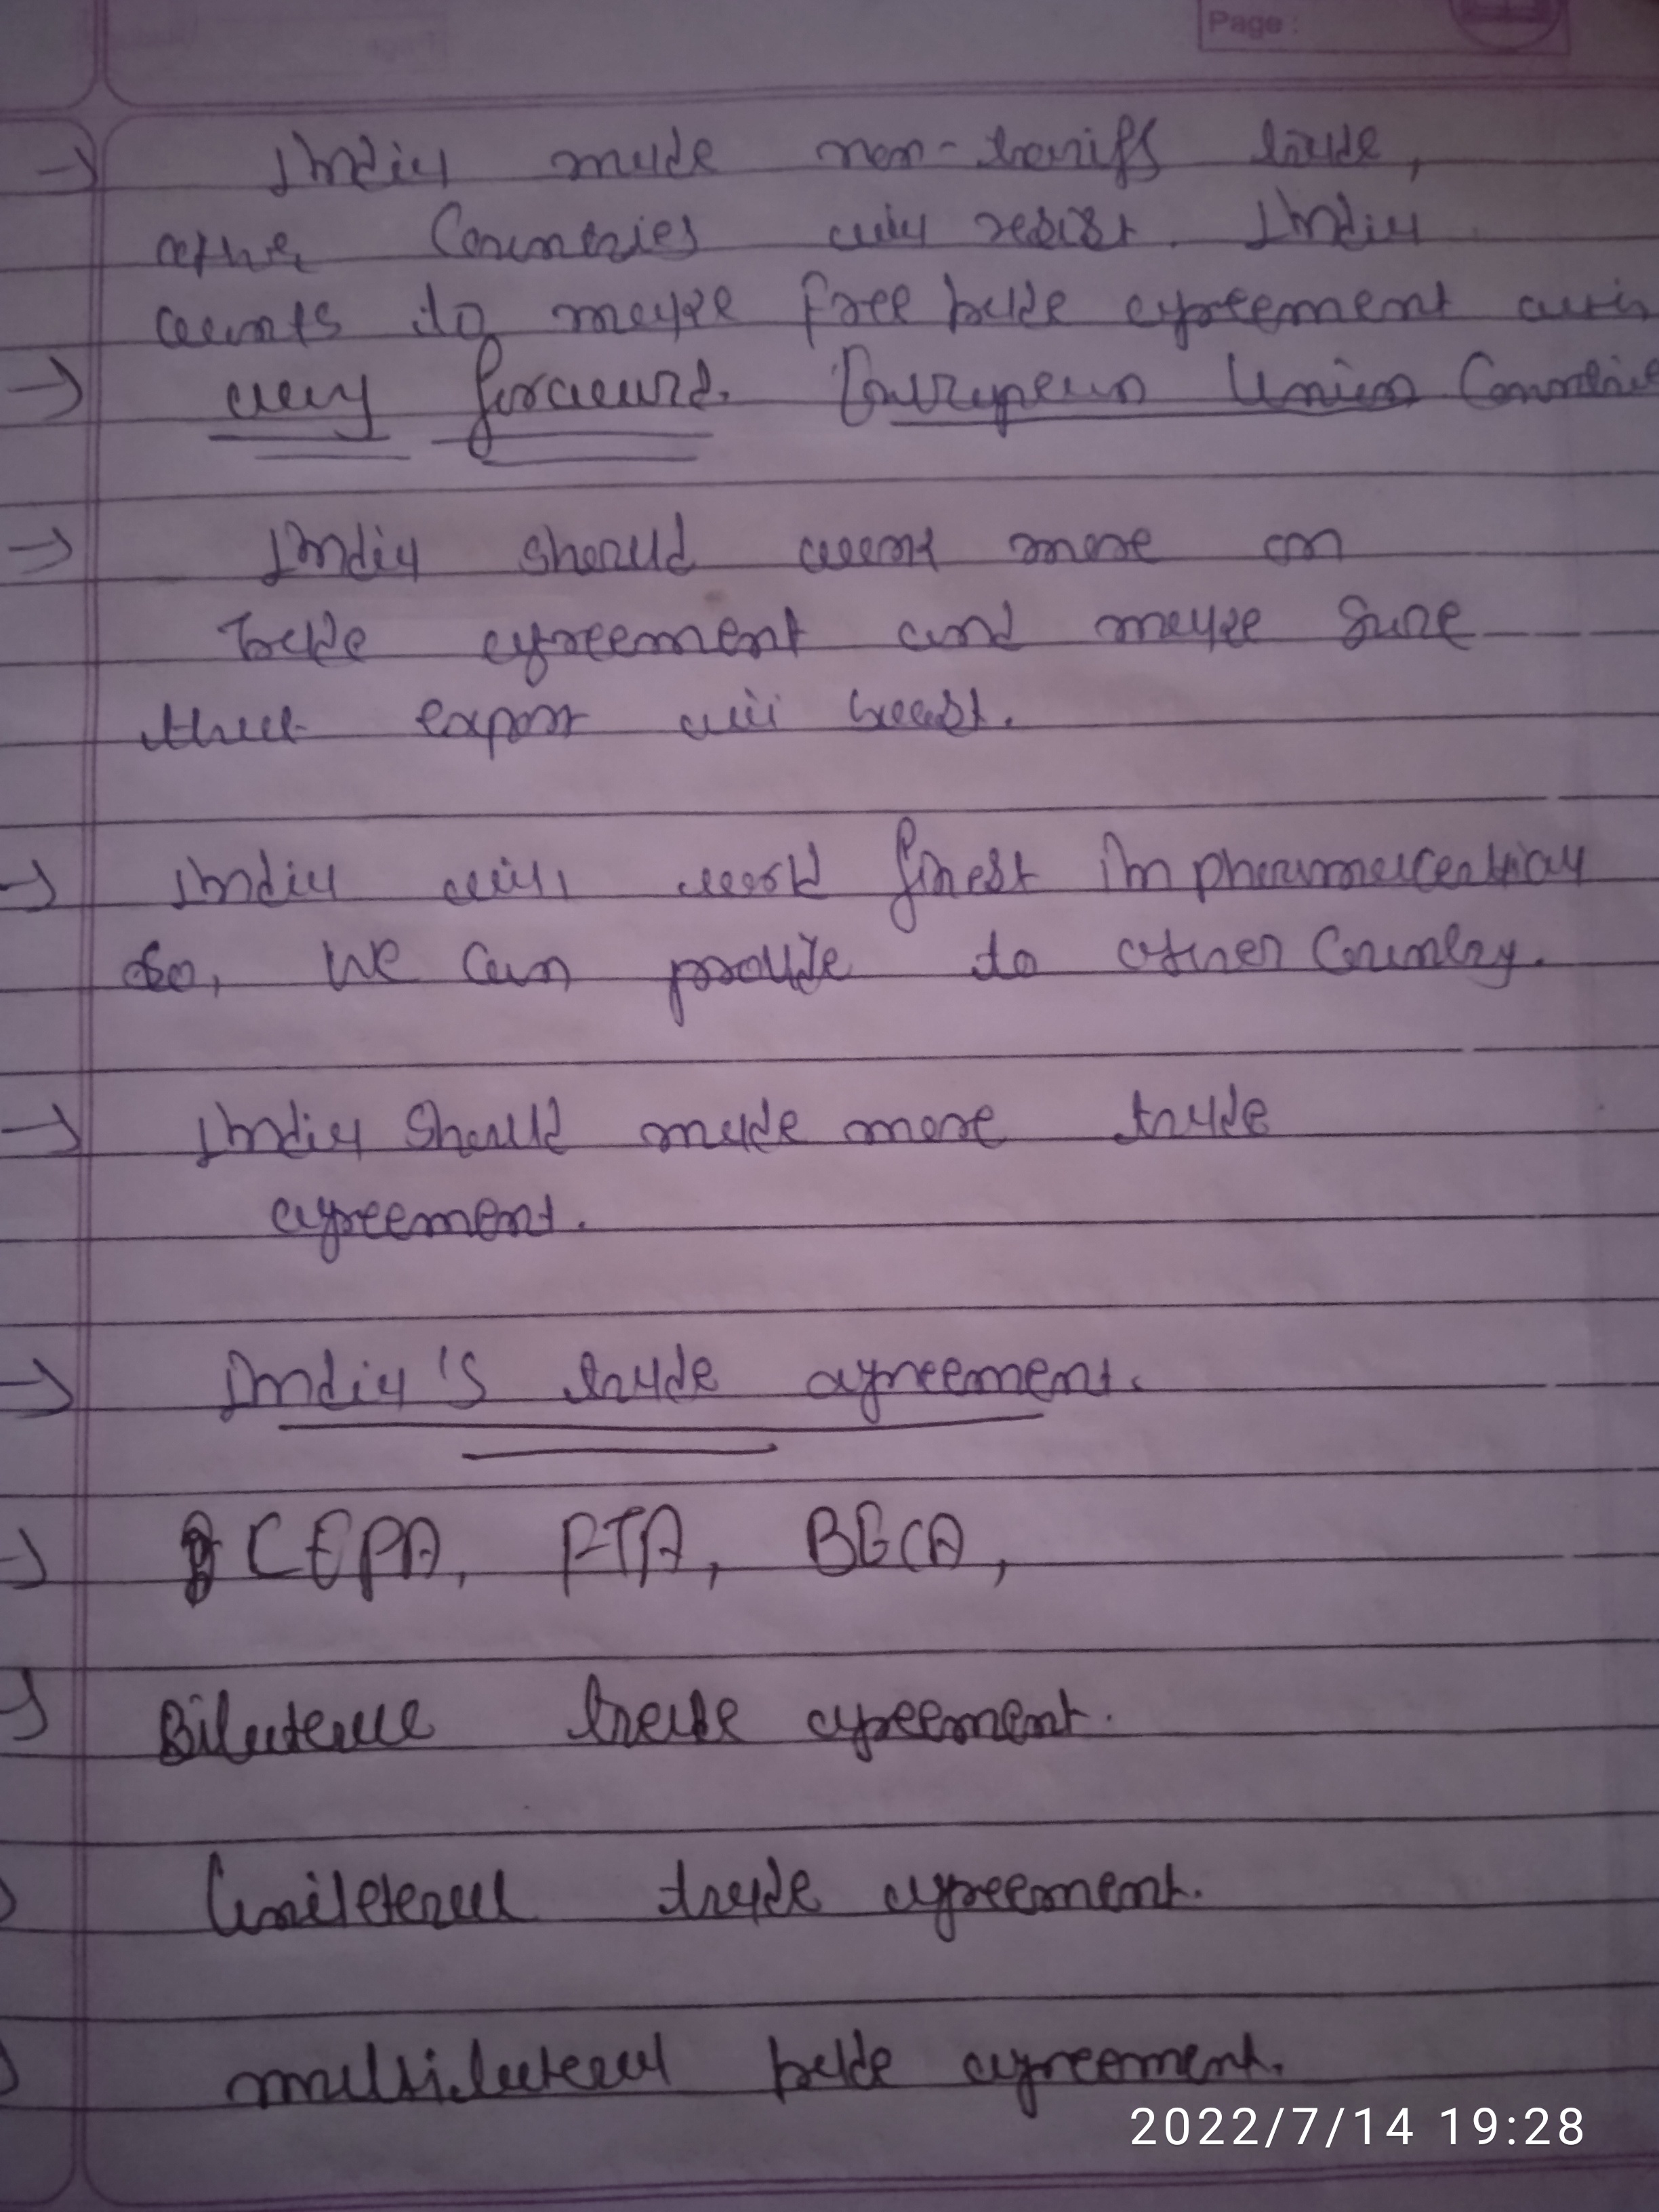 Page :
→ India made non-tariff trade,
other Countries will resist. India
wants to make free trade agreement with
→ way forward. European Union Countries
→ India should work more on
Trade agreement and make sure
that export will boost.
→ India will world finest in pharmaceutical
So, we can provide to other Country.
→ India should made more trade
agreement.
→ India's trade agreement.
→ CEPA, FTA, BECA,
→ Bilateral trade agreement.
Unileteral trade agreement.
multilateral trade agreement.
2022/7/14 19:28